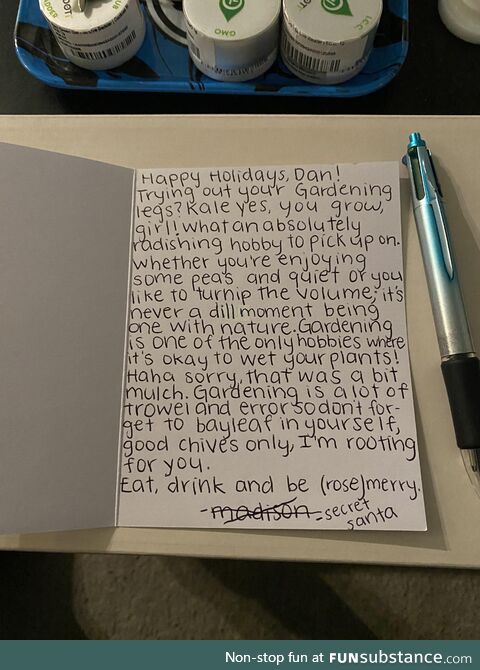 GMO
Happy Holidays, Dan!
Trying out your Gardening
legs? Kale yes, you grow,
girl! What an absolutely
radishing hobby to pick up on.
Whether you're enjoying
some peas and quiet or you
like to turnip the volume, it's
never a dill moment being
one with nature. Gardening
is one of the only hobbies where
it's okay to wet your plants!
Haha sorry, that was a bit
mulch. Gardening is a lot of
trowel and error so don't for-
get to bayleaf in yourself,
good chives only, I'm rooting
for you.
Eat, drink and be (rose)merry.
-madison -secret
santa
Non-stop fun at FUNsubstance.com